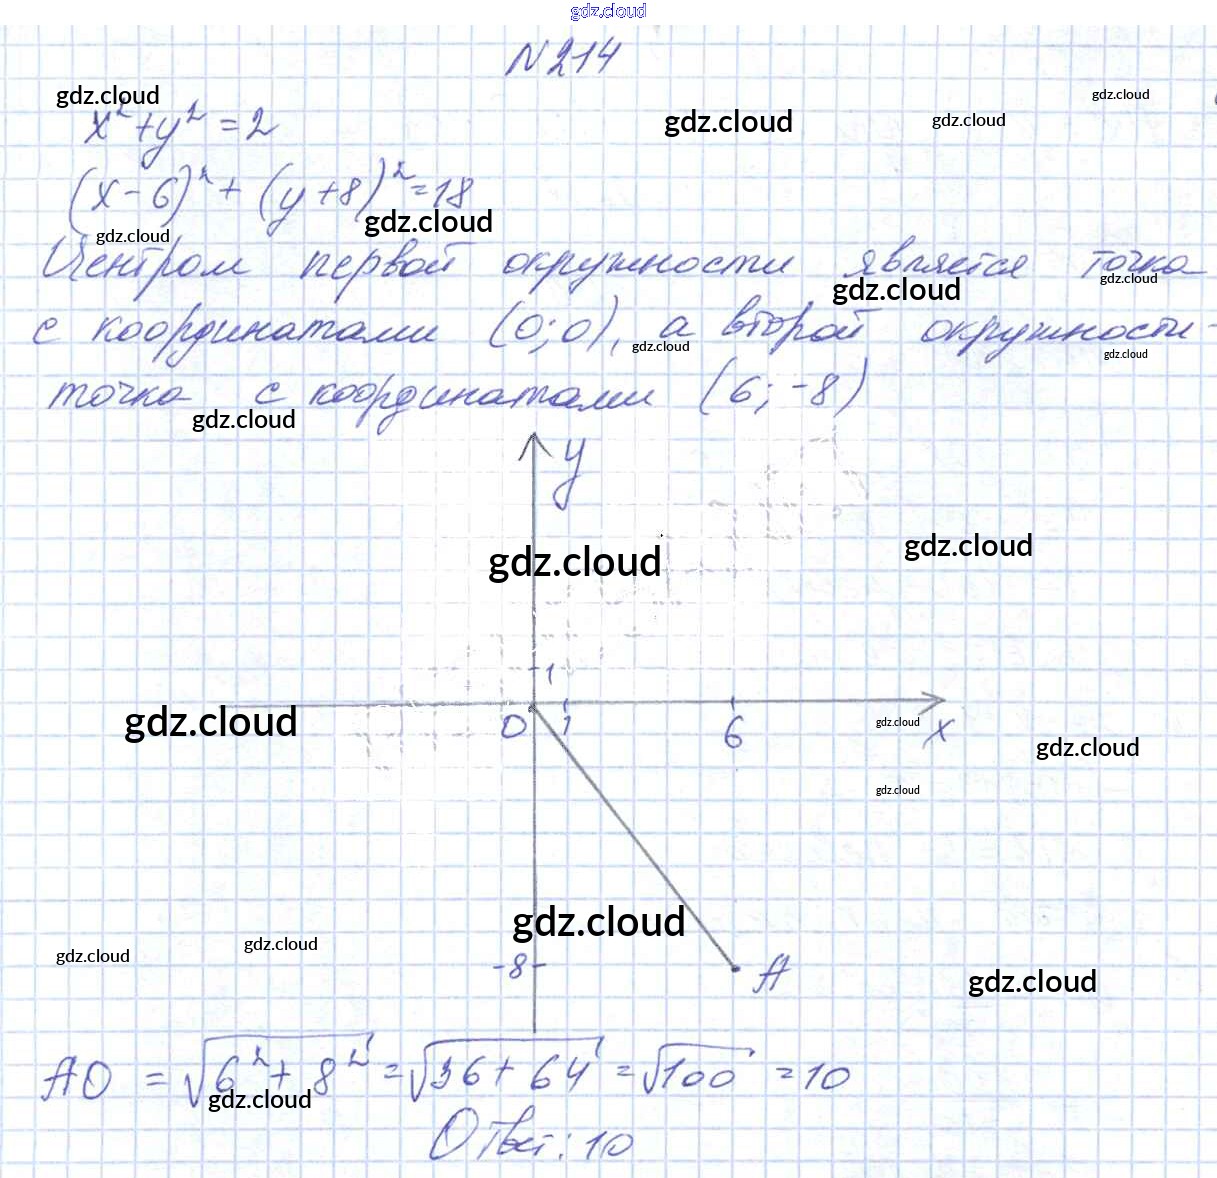 gdz.cloud
N 214
gdz.cloud
gdz.cloud
gdz.cloud
gdz.cloud
x² + y² = 2
(x - 6)² + (y + 8)² = 18
gdz.cloud
gdz.cloud
Центром первой окружности является точка
gdz.cloud
gdz.cloud
с координатами (0; 0), а второй окружности -
gdz.cloud
gdz.cloud
точка с координатами (6; -8)
gdz.cloud
y
gdz.cloud
gdz.cloud
1
gdz.cloud
0 1 6 x
gdz.cloud
gdz.cloud
gdz.cloud
gdz.cloud
gdz.cloud
gdz.cloud
-8 A
gdz.cloud
AO = √6² + 8² = √36 + 64 = √100 = 10
gdz.cloud
Ответ: 10